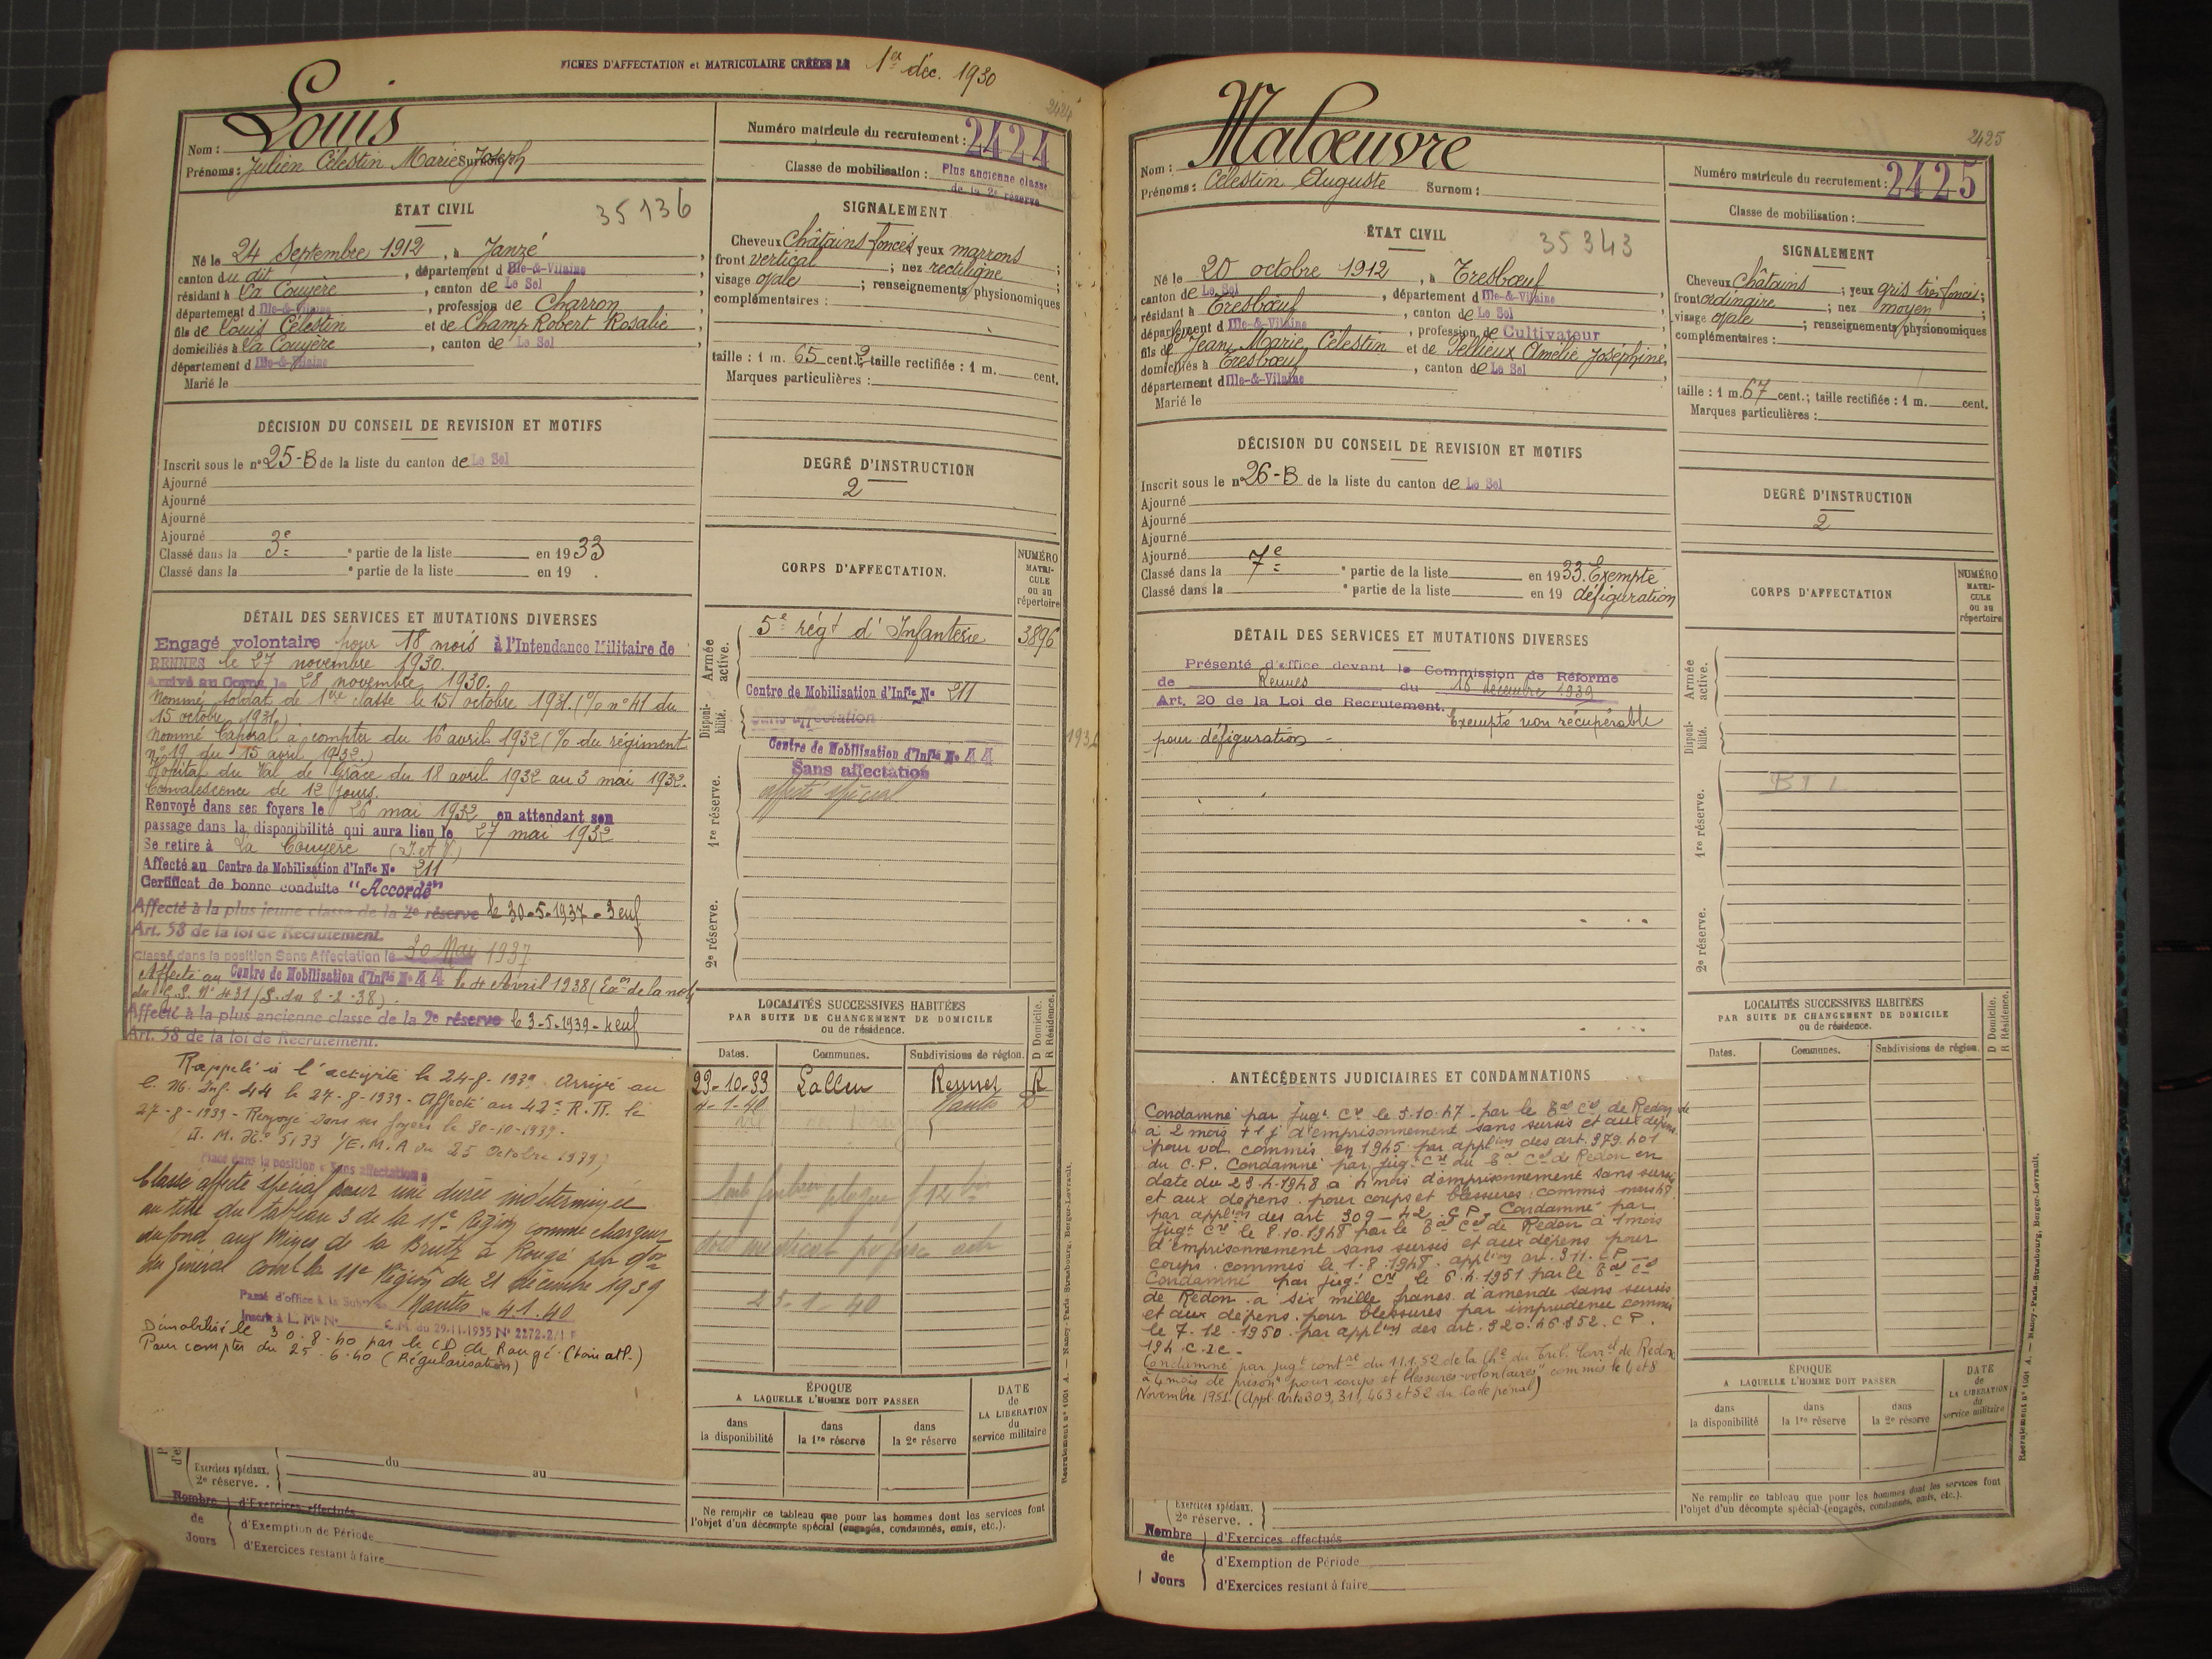 FICHES D'AFFECTATION et MATRICULAIRE CRÉÉES LE 1er déc. 1930
2424
Nom : Louis
Prénoms : Julien Célestin Marie Joseph Surnom
Numéro matricule du recrutement : 2424
Classe de mobilisation : Plus ancienne classe
de la 2e réserve
ÉTAT CIVIL
35136
Né le 24 Septembre 1912, à Janzé,
canton du dit, département d Ille-&-Vilaine
résidant à La Couyère, canton de Le Sel
département d Ille-&-Vilaine, profession de Charron
fils de Louis Célestin et de Champ Robert Rosalie,
domiciliés à La Couyère, canton de Le Sel
département d Ille-&-Vilaine
Marié le
SIGNALEMENT
Cheveux Châtains foncés yeux marrons ;
front vertical ; nez rectiligne ;
visage ovale ; renseignements physionomiques
complémentaires :
taille : 1 m. 65 cent. 2 ; taille rectifiée : 1 m. cent.
Marques particulières :
DÉCISION DU CONSEIL DE REVISION ET MOTIFS
Inscrit sous le n° 25-B de la liste du canton de Le Sel
Ajourné
Ajourné
Ajourné
Ajourné
Classé dans la 3e ° partie de la liste en 1933
Classé dans la ° partie de la liste en 19 .
DEGRÉ D'INSTRUCTION
2
DÉTAIL DES SERVICES ET MUTATIONS DIVERSES
Engagé volontaire pour 18 mois à l'Intendance Militaire de
RENNES le 27 novembre 1930.
Arrivé au Corps le 28 novembre 1930.
Nommé soldat de 1re classe le 15 octobre 1931. (% n° 41 du
15 octobre 1931.)
Nommé Caporal à compter du 16 avril 1932 (% du régiment
n° 19 du 15 avril 1932.)
Hôpital du Val de Grâce du 18 avril 1932 au 3 mai 1932.
Convalescence de 12 jours.
Renvoyé dans ses foyers le 26 mai 1932 en attendant son
passage dans la disponibilité qui aura lieu le 27 mai 1932
Se retire à La Couyère (I. et V.)
Affecté au Centre de Mobilisation d'Infie No 211
Certificat de bonne conduite "Accordé"
Affecté à la plus jeune classe de la 2e réserve le 30-5-1937 - 3 enf
Art. 58 de la loi de Recrutement.
Classé dans la position Sans Affectation le 30 Mai 1937
Affecté au Centre de Mobilisation d'Infie No 44 le 4 Avril 1938 (Exon de la note
du G.S. N° 431/S. du 8-2-38).
Affecté à la plus ancienne classe de la 2e réserve le 3-5-1939 - 4 enf
Art. 58 de la loi de Recrutement.
Rappelé à l'activité le 24-8-1939. Arrivé au
C. M. Inf. 44 le 27-8-1939 - Affecté au 42e R.R. le
27-8-1939 - Renvoyé dans ses foyers le 30-10-1939.
5133 1/E.M.A du 25 Octobre 1939)
Placé dans la position « Sans affectation »
Classé affecté spécial pour une durée indéterminée
au titre du tableau 3 de la 11e Région comme chargeur
du fond aux Mines de la Brutz à Rougé par don
du Général comt la 11e Région du 21 décembre 1939
Passé d'office à la Subon Nantes le 4.1.40
Inscrit à L. Me No C.M. du 29.11.1935 No 2272.2/1 F
Démobilisé le 30.8.40 par le CD de Rougé.
Pour compter du 25.6.40 (Régularisation)
CORPS D'AFFECTATION.
NUMÉRO
MATRI-
CULE
ou au
répertoire
Armée
active.
5e régt d'Infanterie 3896
Disponi-
bilité.
Centre de Mobilisation d'Infie No 211
Sans affectation
1re réserve.
Centre de Mobilisation d'Infie No 44
Sans affectation
affecté spécial
2e réserve.
LOCALITÉS SUCCESSIVES HABITÉES
PAR SUITE DE CHANGEMENT DE DOMICILE
ou de résidence.
D Domicile.
R Résidence.
Dates. Communes. Subdivisions de région.
29-10-33 Lalleu Rennes R
4-1-40 Nantes D
25-1-40
ÉPOQUE
A LAQUELLE L'HOMME DOIT PASSER
dans
la disponibilité
dans
la 1re réserve
dans
la 2e réserve
DATE
de
LA LIBÉRATION
du
service militaire
Ne remplir ce tableau que pour les hommes dont les services font
l'objet d'un décompte spécial (engagés, condamnés, omis, etc.).
Exercices spéciaux.
2e réserve. .
du au
Nombre
de
Jours
d'Exercices effectués
d'Exemption de Période
d'Exercices restant à faire
Recrutement n° 1001 A. — Nancy-Paris-Strasbourg, Berger-Levrault.
2425
Nom : Malœuvre
Prénoms : Célestin Auguste Surnom :
Numéro matricule du recrutement : 2425
Classe de mobilisation :
ÉTAT CIVIL
35343
Né le 20 octobre 1912, à Tresbœuf
canton de Le Sel, département d Ille-&-Vilaine
résidant à Tresbœuf, canton de Le Sel
département d Ille-&-Vilaine, profession de Cultivateur
fils de Jean Marie Célestin et de Pellieux Amélie Joséphine,
domiciliés à Tresbœuf, canton de Le Sel
département d Ille-&-Vilaine
Marié le
SIGNALEMENT
Cheveux Châtains ; yeux gris très foncé ;
front ordinaire ; nez moyen ;
visage ovale ; renseignements physionomiques
complémentaires :
taille : 1 m. 67 cent. ; taille rectifiée : 1 m. cent.
Marques particulières :
DÉCISION DU CONSEIL DE REVISION ET MOTIFS
Inscrit sous le n° 26-B de la liste du canton de Le Sel
Ajourné
Ajourné
Ajourné
Ajourné
Classé dans la 7e ° partie de la liste en 1933. Exempté
Classé dans la ° partie de la liste en 19 défiguration
DEGRÉ D'INSTRUCTION
2
DÉTAIL DES SERVICES ET MUTATIONS DIVERSES
Présenté d'office devant la Commission de Réforme
de Rennes du 16 décembre 1939
Art. 20 de la Loi de Recrutement. Exempté non récupérable
pour défiguration -
CORPS D'AFFECTATION
NUMÉRO
MATRI-
CULE
ou au
répertoire
Armée
active.
Disponi-
bilité.
1re réserve.
2e réserve.
ANTÉCÉDENTS JUDICIAIRES ET CONDAMNATIONS
Condamné par jugt Cel le 5.10.47 par le Bal Cel de Redon de
à 2 mois + 1 j d'emprisonnement sans sursis et aux dépens
pour vol commis en 1945 par applion des art. 379.401
du C.P. Condamné par jugt Cel du Bal Cel de Redon en
date du 23-4-1948 à 4 mois d'emprisonnement sans sursis
et aux dépens pour coups et blessures commis mars 48
par applion des art. 309-42 C.P. Condamné par
jugt Cel le 8.10.1948 par le Bal Cel de Redon à 1 mois
d'emprisonnement sans sursis et aux dépens pour
coups commis le 1-8-1948 applion art. 311. CP
Condamné par jugt Cel le 6.4.1951 par le Bal Cel
de Redon à six mille francs d'amende sans sursis
et aux dépens pour blessures par imprudence commis
le 7-12-1950 par applion des art. 320.463.52. C.P.
194 C.I.C -
Condamné par jugt contre du 11.1.52 de la Che du Trib. Correl de Redon
à 4 mois de prison pour coups et blessures volontaires commis le 4 et 8
Novembre 1951. (Appl. arts 309, 311, 463 et 52 du Code pénal)
LOCALITÉS SUCCESSIVES HABITÉES
PAR SUITE DE CHANGEMENT DE DOMICILE
ou de résidence.
D Domicile.
R Résidence.
Dates. Communes. Subdivisions de région.
ÉPOQUE
A LAQUELLE L'HOMME DOIT PASSER
dans
la disponibilité
dans
la 1re réserve
dans
la 2e réserve
DATE
de
LA LIBÉRATION
du
service militaire
Ne remplir ce tableau que pour les hommes dont les services font
l'objet d'un décompte spécial (engagés, condamnés, omis, etc.).
Exercices spéciaux.
2e réserve. .
Nombre
de
Jours
d'Exercices effectués
d'Exemption de Période
d'Exercices restant à faire
Recrutement n° 1001 A. — Nancy-Paris-Strasbourg, Berger-Levrault.